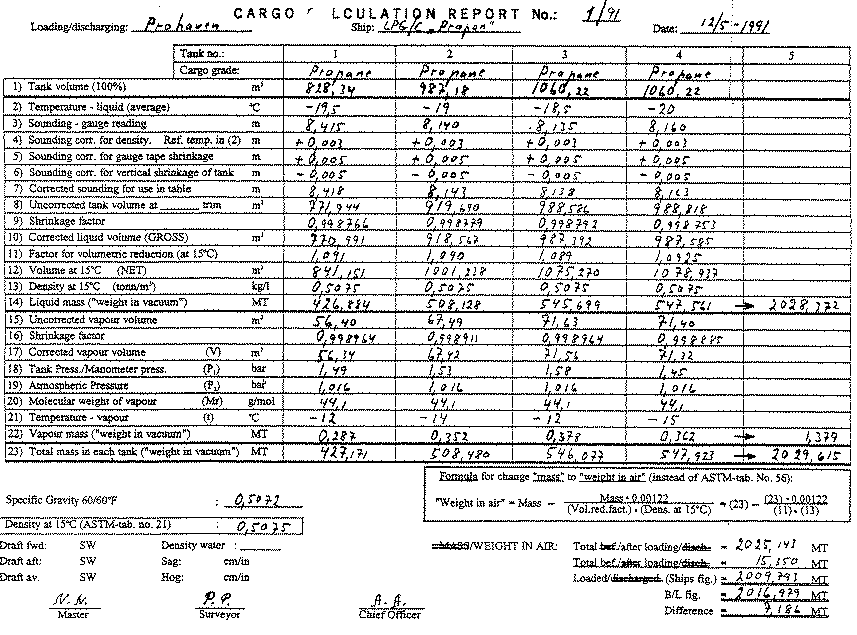 CARGO LCULATION REPORT No.: 1/91
Loading/discharging: Prohaven Ship: LPG/C "Propan" Date: 12/5-1991
Tank no.: 1 2 3 4 5
Cargo grade: Propane Propane Propane Propane
1) Tank volume (100%) m³ 828,34 987,18 1060,22 1060,22
2) Temperature - liquid (average) °C -19,5 -19 -18,5 -20
3) Sounding - gauge reading m 8,415 8,140 8,135 8,160
4) Sounding corr. for density. Ref. temp. in (2) m +0,003 +0,003 +0,003 +0,003
5) Sounding corr. for gauge tape shrinkage m +0,005 +0,005 +0,005 +0,005
6) Sounding corr. for vertical shrinkage of tank m -0,005 -0,005 -0,005 -0,005
7) Corrected sounding for use in table m 8,418 8,143 8,138 8,163
8) Uncorrected tank volume at ______ trim m³ 771,944 919,690 988,586 988,818
9) Shrinkage factor 0,998766 0,998779 0,998792 0,998753
10) Corrected liquid volume (GROSS) m³ 770,991 918,567 987,392 987,585
11) Factor for volumetric reduction (at 15°C) 1,091 1,090 1,089 1,0925
12) Volume at 15°C (NET) m³ 841,151 1001,238 1075,270 1078,937
13) Density at 15°C (tonn/m³) kg/l 0,5075 0,5075 0,5075 0,5075
14) Liquid mass ("weight in vacuum") MT 426,884 508,128 545,699 547,561 → 2028,372
15) Uncorrected vapour volume m³ 56,40 67,49 71,63 71,40
16) Shrinkage factor 0,998964 0,998911 0,998964 0,998885
17) Corrected vapour volume (V) m³ 56,34 67,42 71,56 71,32
18) Tank Press./Manometer press. (P₁) bar 1,49 1,53 1,58 1,45
19) Atmospheric Pressure (P₂) bar 1,016 1,016 1,016 1,016
20) Molecular weight of vapour (Mr) g/mol 44,1 44,1 44,1 44,1
21) Temperature - vapour (t) °C -12 -14 -12 -15
22) Vapour mass ("weight in vacuum") MT 0,287 0,352 0,378 0,362 → 1,379
23) Total mass in each tank ("weight in vacuum") MT 427,171 508,480 546,077 547,923 → 2029,615
Formula for change "mass" to "weight in air" (instead of ASTM-tab. No. 56):
"Weight in air" = Mass - Mass · 0.00122 / (Vol.red.fact.) · (Dens. at 15°C) = (23) - (23) · 0.00122 / (11) · (13)
Specific Gravity 60/60°F : 0,5072
Density at 15°C (ASTM-tab. no. 21) : 0,5075
Draft fwd: SW Density water : ______
Draft aft: SW Sag: cm/in
Draft av. SW Hog: cm/in
MASS/WEIGHT IN AIR: Total bef./after loading/disch. = 2025,143 MT
Total bef./after loading/disch. = 15,350 MT
Loaded/discharged (Ships fig.) = 2009,793 MT
B/L fig. = 2016,979 MT
Difference = 7,186 MT
N. N. P. P. A. A.
Master Surveyor Chief Officer